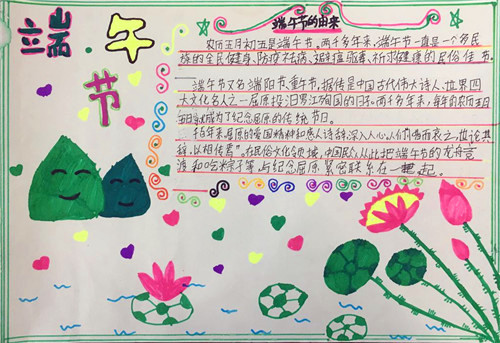 端午节
端午节的由来
农历五月初五是端午节。两千多年来,端午节一直是一个多民
族的全民健身、防疫祛病、避瘟驱毒、祈求健康的民俗佳节。
端午节又名端阳节、重午节,据传是中国古代伟大诗人、世界四
大文化名人之一屈原投汨罗江殉国的日子。两千多年来,每年的农历五月
初五就成为了纪念屈原的传统节日。
千百年来,屈原的爱国精神和感人诗辞,深入人心。人们"惜而哀之,世论其
辞,以相传焉"。在民俗文化领域,中国民众从此把端午节的龙舟竞
渡和吃粽子等,与纪念屈原紧密联系在一起。